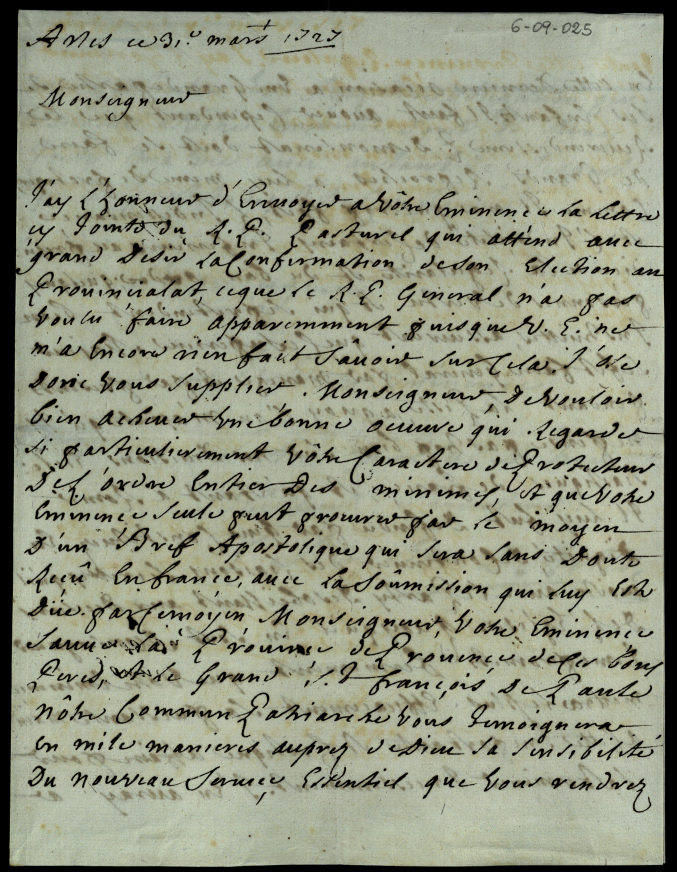 6-09-025
Arles ce 31.e mars 1727
Monseigneur
J'ay l'honneur d'Envoyer a vôtre Eminence la lettre
cy Jointe du R. P. Pasturel qui attend avec
grand Desir la Confirmation de son Election au
Provincialat, ce que le R. P. General n'a pas
voulu faire apparemment puisque V. E. ne
m'a Encore rien fait sâvoir sur Cela. J'ose
Donc vous supplier, Monseigneur, De vouloir
bien achever une bonne oeuvre qui Regarde
si particulierement vôtre Caractere de Protecteur
De l'ordre Entier Des minimes, et que Votre
Eminence seule peut procurer par le moyen
D'un Bref Apostolique qui sera sans Doute
Reçû En france, avec la soûmission qui luy Est
Düe. par ce moyen Monseigneur, Votre Eminence
sauve la Province de Provence de ces bons
Peres, et le Grand S.t françois De Paule
nôtre Commun Patriarche vous temoignera
en mile manieres auprez de Dieu sa sensibilité
Du nouveau service Essentiel que vous rendrez